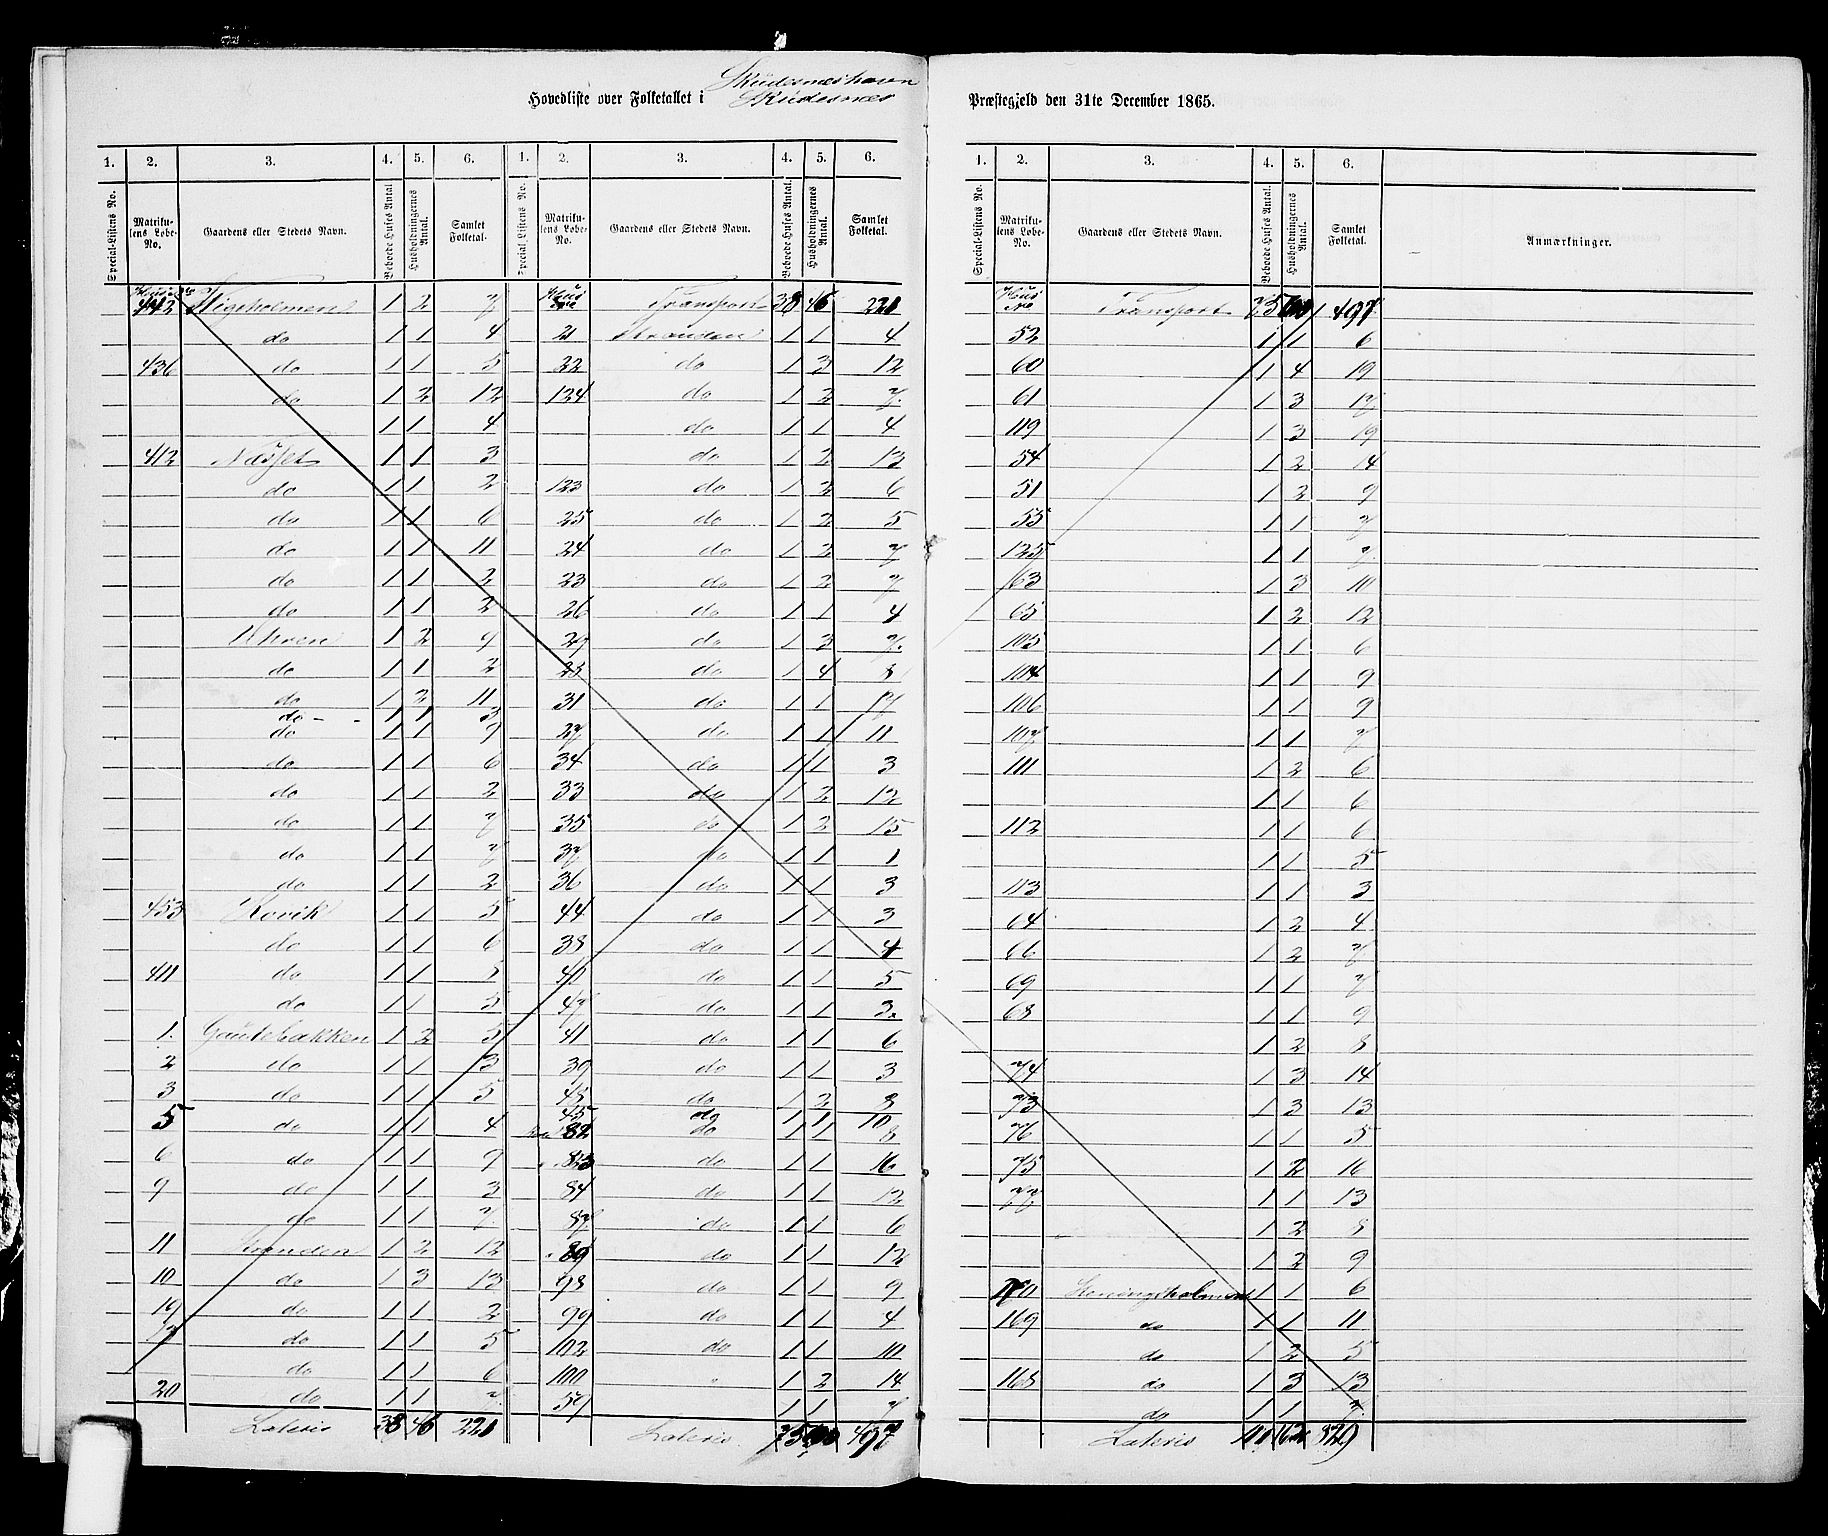 Skudesneshavn
Hovedliste over Folketallet i Skudesnæs Præstegjeld den 31te December 1865.
1. 2. 3. 4. 5. 6. 1. 2. 3. 4. 5. 6.
Special-Listens No. Matrikulens Løbe-No. Gaardens eller Stedets Navn. Beboede Huses Antal Husholdningernes Antal. Samlet Folketal. Special-Listens No. Matrikulens Løbe-No. Gaardens eller Stedets Navn. Beboede Huses Antal. Husholdningernes Antal. Samlet Folketal.
442 1 2 7 Hus No Transport 38 46 221
do 1 1 4 21 Stranden 1 1 4
436 do 1 1 5 22 do 1 3 12
do 1 2 12 124 do 1 2 7.
1 1 4 do 1 1 4
412 Næsset 1 1 3 do 1 2 13
do 1 1 2 123 do 1 2 6
do 1 1 6 25 do 1 2 5
do 1 1 11 24 do 1 2 7
do 1 1 2 23 do 1 2 7
do 1 1 2 26 do 1 1 4
1 2 9 29 do 1 3 7.
do 1 1 2 28 do 1 4 8
do 1 2 11 31 do 1 1 17
do 1 1 3
do 1 1 9 27 do 1 1 11
do 1 1 6 34 do 1 1 3
do 1 1 2 33 do 1 2 12
do 1 1 7 35 do 1 2 15
do 1 1 7 37 do 1 1 1
do 1 1 2 36 do 1 1 3
453 Kovik 1 1 5 44 do 1 1 3
do 1 1 6 38 do 1 1 4
411 do 1 1 8 40 do 1 1 5
do 1 1 5 47 do 1 1 3.
1. Gautebakken 1 2 5 41 do 1 1 6
2 do 1 1 3 39 do 1 1 3
3 do 1 1 5 48 do 1 2 8
45 do 1 1 10
5 do 1 1 4 82 do 1 1 8
6 do 1 1 9 83 do 1 1 16
9 do 1 1 3 84 do 1 1 12
do 1 1 7. 87 do 1 1 6
11 Stranden 1 2 12 89 do 1 1 12
10 do 1 3 13 98 do 1 1 9
19 do 1 1 2 99 do 1 1 4
do 1 1 5 102 do 1 1 10
do 1 1 6 100 " 1 2 14
20 do 1 1 7. 59 1 1 7
Lateris 38 46 221 Lateris 75 497
1. 2. 3. 4. 5. 6.
Special-Listens No. Matrikulens Løbe-No. Gaardens eller Stedets Navn. Beboede Huses Antal. Husholdningernes Antal. Samlet Folketal. Anmærkninger.
Hus No Transport 75 497
52 1 1 6
60 1 4 19
61 1 3 17
119 1 3 19
54 1 2 14
51 1 2 9
55 1 1 7
125 1 1 7.
63 1 3 10
65 1 2 12
105 1 1 6
104 1 1 9
106 1 1 9
107 1 1 7
111 1 2 6
1 1 6
112 1 1 6
1 1 5
113 1 1 3
64 1 2 4
66 1 2 7
69 1 1 7
68 1 1 9
1 2 8
74 1 3 14
73 1 3 13
76 1 1 5
75 1 2 16
77 1 1 13
1 2 8
1 2 9
170 Steiningsholmen 1 1 6
169 do 1 1 11
do 1 2 5
168 do 1 3 13
do 1 1 7.
Lateris 111 162 829